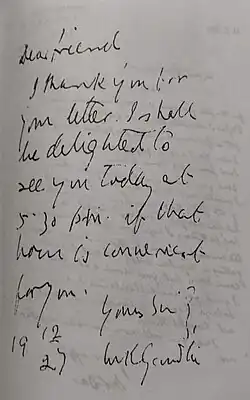 Dear friend
I thank you for
your letter. I shall
be delighted to
see you today at
5.30 p.m. if that
hour is convenient
for you.
Yours
19 12
27 MKGandhi